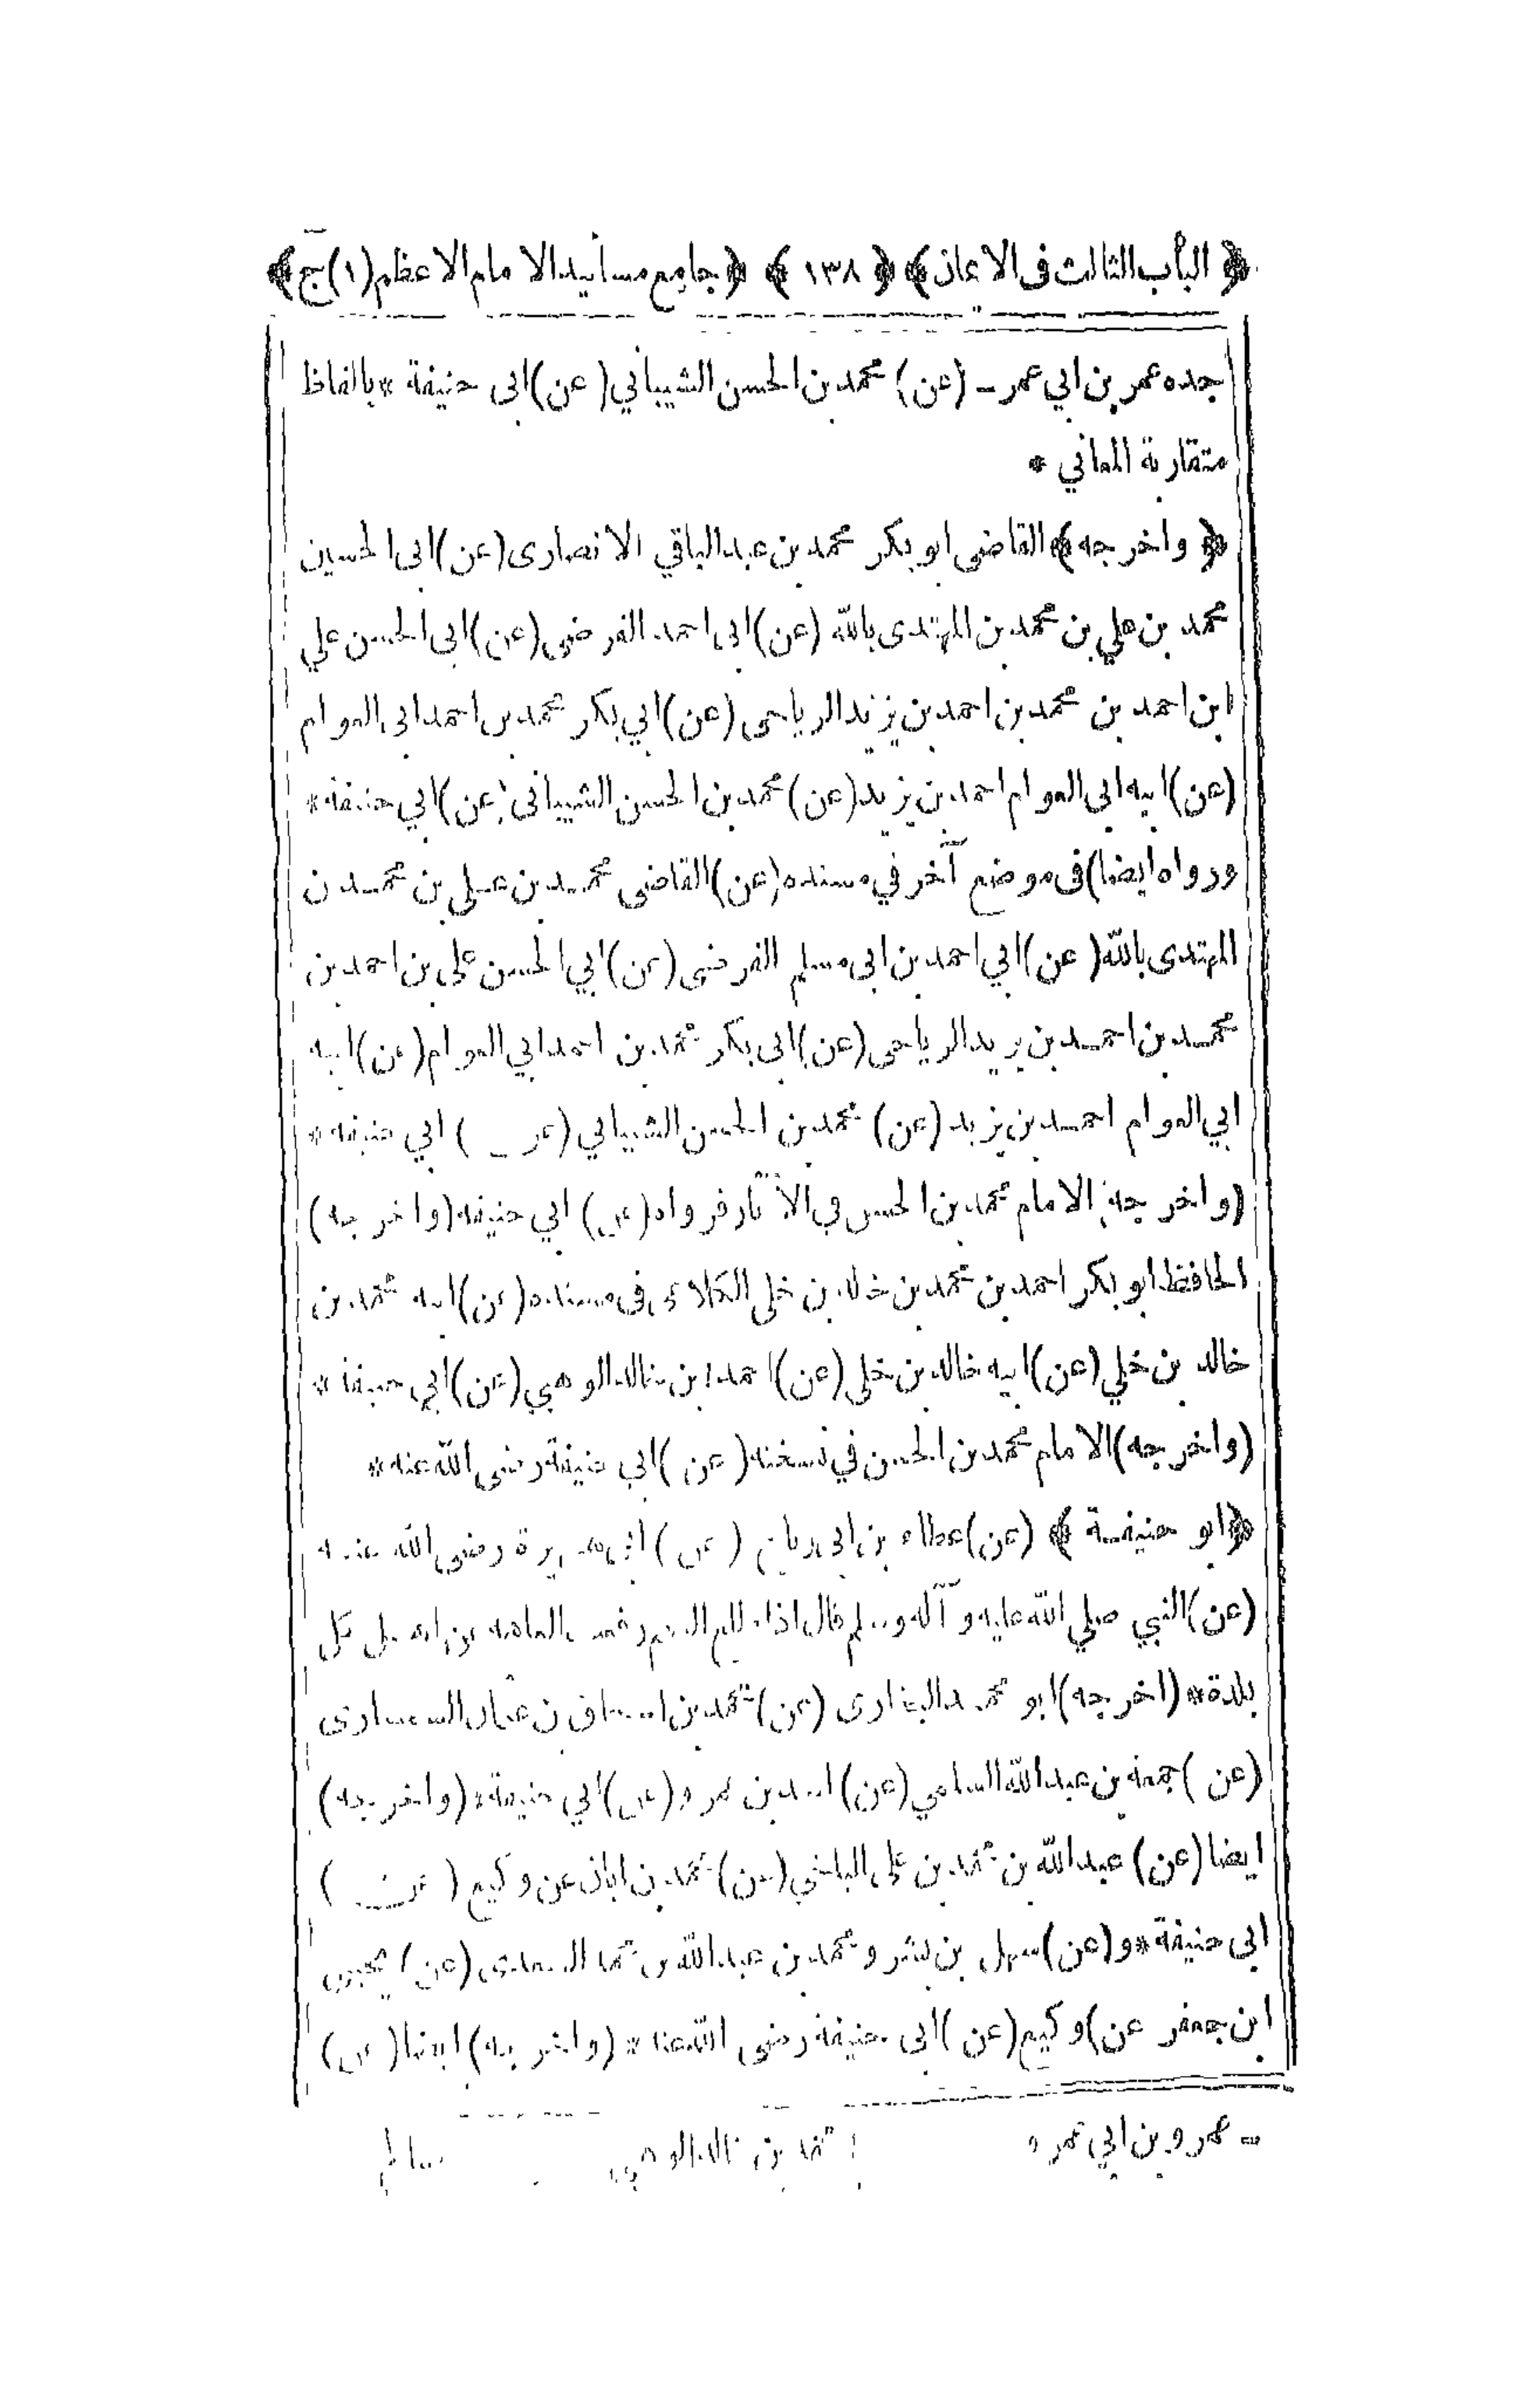 ﴿ الباب الثالث فى الايمان ﴾ ﴿ ١٣٨ ﴾ ﴿ جامع مسانيد الامام الاعظم (١) ج ﴾
جده عمر بن ابي عمر ـ (عن) محمد بن الحسن الشيباني (عن) ابى حنيفة * بالفاظ
متقاربة المعاني *
﴿ واخرجه ﴾ القاضى ابو بكر محمد بن عبد الباقي الانصارى (عن) ابى الحسين
محمد بن علي بن محمد بن المهتدى بالله (عن) ابى احمد الفرضى (عن) ابى الحسن علي
ابن احمد بن محمد بن احمد بن يزيد الرياحى (عن) ابي بكر محمد بن احمد ابى العوام
(عن) ابيه ابى العوام احمد بن يزيد (عن) محمد بن الحسن الشيبانى (عن) ابي حنيفة *
ورواه ايضا) فى موضع آخر في مسنده (عن) القاضى محمد بن علي بن محمد بن
المهتدى بالله (عن) ابي احمد بن ابى مسلم الفرضى (عن) ابي الحسن على بن احمد بن
محمد بن احمد بن يزيد الرياحى (عن) ابى بكر محمد بن احمد ابي العوام (عن) ابيه
ابي العوام احمد بن يزيد (عن) محمد بن الحسن الشيباني (عن) ابي حنيفة *
(واخرجه) الامام محمد بن الحسن في الآثار فرواه (عن) ابي حنيفة (واخرجه)
الحافظ ابو بكر احمد بن محمد بن خالد بن خلى الكلاعى فى مسنده (عن) ابيه محمد بن
خالد بن خلي (عن) ابيه خالد بن خلى (عن) احمد ! بن خالد الوهبي (عن) ابي حنيفة *
(واخرجه) الامام محمد بن الحسن في نسخته (عن) ابي حنيفة رضى الله عنه *
﴿ ابو حنيفة ﴾ (عن) عطاء بن ابى رباح (عن) ابى هريرة رضى الله عنه
(عن) النبي صلي الله عليه وآله وسلم قال اذا طلع النجم رفعت العاهة عن اهل كل
بلدة * (اخرجه) ابو محمد البخارى (عن) محمد بن اسحاق بن عثمان السمسارى
(عن) جمعة بن عبد الله السلمي (عن) اسد بن عمرو (عن) ابي حنيفة * (واخرجه)
ايضا (عن) عبد الله بن محمد بن على البلخي (عن) محمد بن ابان عن وكيع (عن)
ابى حنيفة * و (عن) سهل بن بشر و محمد بن عبد الله بن محمد السعدى (عن) يحيى
ابن جعفر عن) وكيع (عن) ابى حنيفة رضى الله عنه * (واخرجه) ايضا (عن)
ـ عمرو بن ابي عمرو ! محمد بن خالد الوهبي صالح